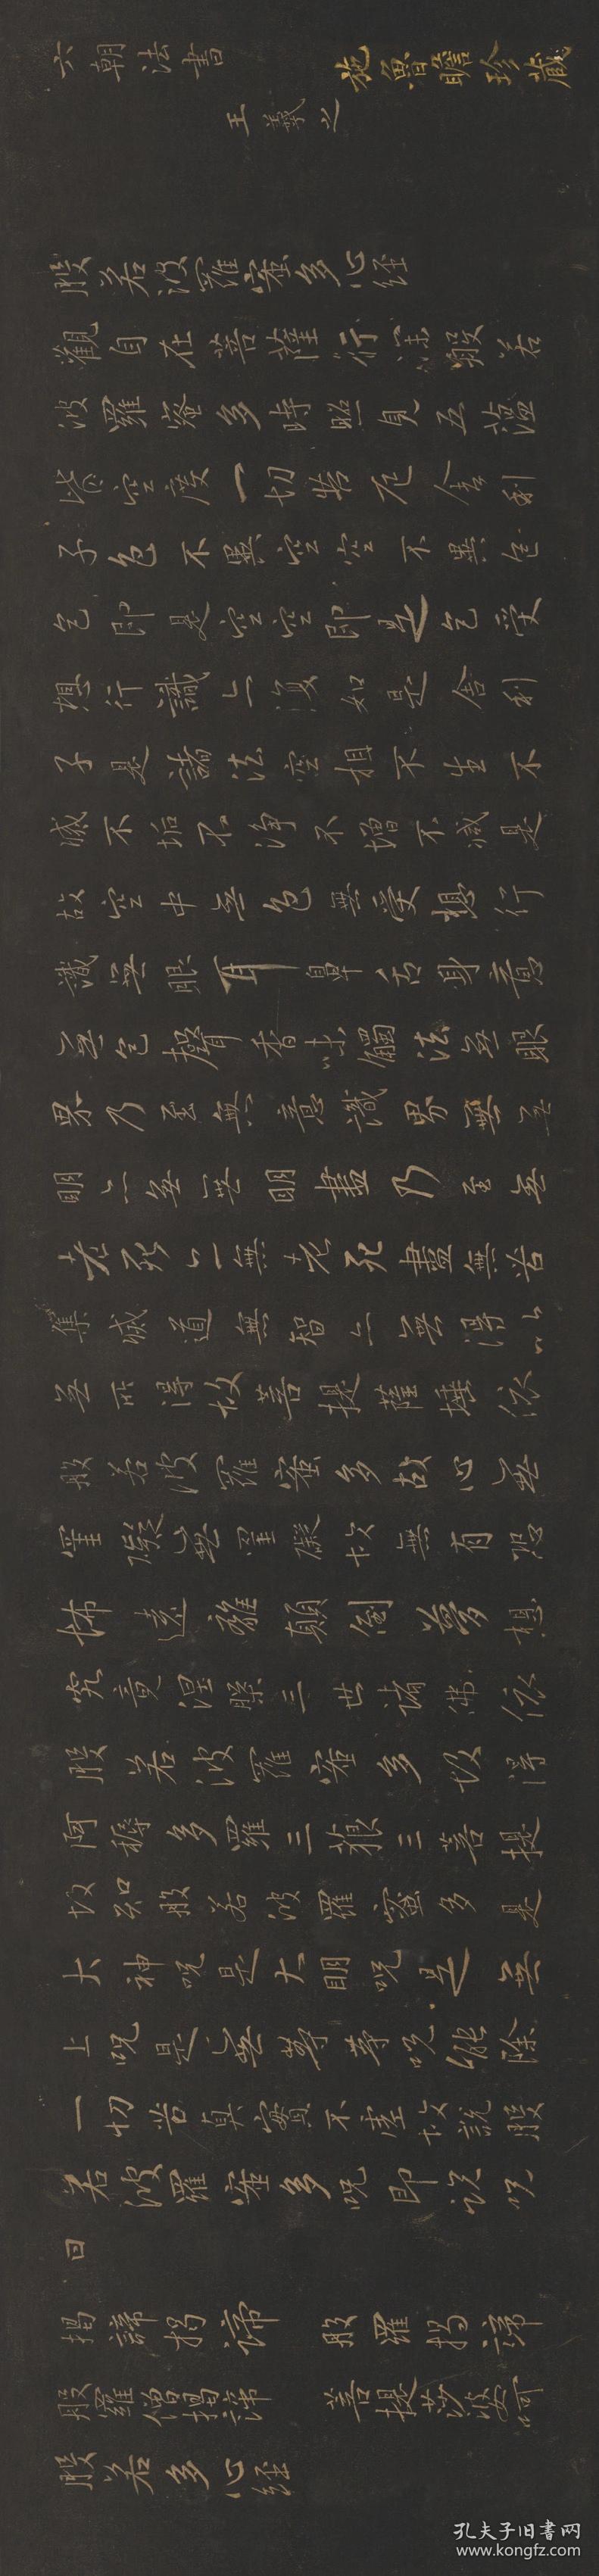 六朝法書
施魯瞻珍藏
王羲之
般若波羅蜜多心經
觀自在菩薩行深般若
波羅蜜多時照見五蘊
皆空度一切苦厄舍利
子色不異空空不異色
色即是空空即是色受
想行識亦復如是舍利
子是諸法空相不生不
滅不垢不淨不增不減是
故空中無色無受想行
識無眼耳鼻舌身意
無色聲香味觸法無眼
界乃至無意識界無無
明亦無無明盡乃至無
老死亦無老死盡無苦
集滅道無智亦無得以
無所得故菩提薩埵依
般若波羅蜜多故心無
罣礙無罣礙故無有恐
怖遠離顛倒夢想
究竟涅槃三世諸佛依
般若波羅蜜多故得
阿耨多羅三藐三菩提
故知般若波羅蜜多是
大神咒是大明咒是無
上咒是無等等咒能除
一切苦真實不虛故說般
若波羅蜜多咒即說咒
曰
揭諦揭諦 般羅揭諦
般羅僧揭諦 菩提莎婆呵
般若多心經
孔夫子旧書网
www.kongfz.com